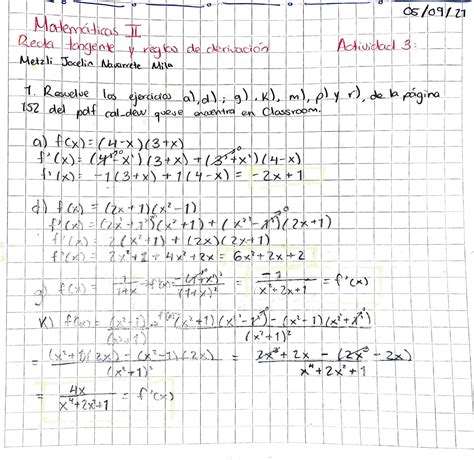 05/09/21
Matemáticas II
Recta tangente y reglas de derivación
Actividad 3:
Metzli Jocelin Navarrete Mila
1. Resuelve los ejercicios a), d), g), k), m), p) y r), de la página
152 del pdf cal_dew que se encuentra en Classroom.
a) f(x) = (4-x)(3+x)
f'(x) = (4-x)'(3+x) + (3+x)'(4-x)
f'(x) = -1(3+x) + 1(4-x) = -2x+1
d) f(x) = (2x+1)(x²-1)
f'(x) = (2x+1)'(x²+1) + (x²-1)'(2x+1)
f'(x) = 2(x²+1) + (2x)(2x+1)
f'(x) = 2x²+2+4x²+2x = 6x²+2x+2
g) f(x) = 1/(1+x) f'(x) = -(1+x)'/(1+x)² = -1/(x²+2x+1) = f'(x)
k) f(x) = (x²-1)/(x²+1) (x²+1)(x²-1)' - (x²-1)(x²+1)'/(x²+1)²
= (x²+1)(2x) - (x²-1)(2x)/(x²+1)² = 2x³+2x - (2x³-2x)/x⁴+2x²+1
= 4x/x⁴+2x²+1 = f'(x)